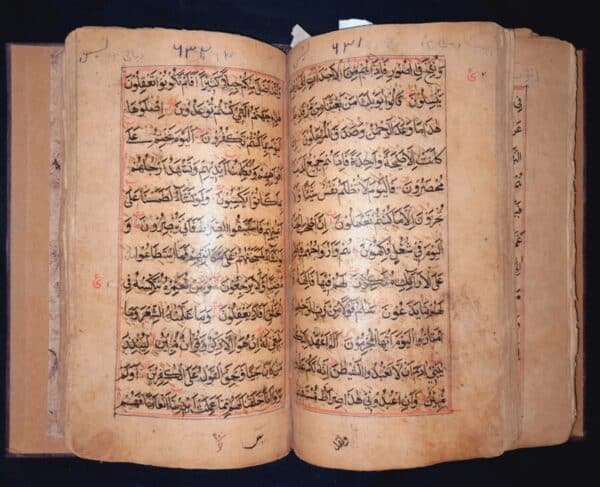 ٦٣١
ونفخ في الصور فاذا هم من الاجداث الى
ينسلون قالوا يويلنا من بعثنا من
هذا ما وعد الرحمن وصدق المرسلون
كانت الا صيحة واحدة فاذا هم جميع لدينا
محضرون فاليوم لا تظلم نفس شيئا ولا
تجزون الا ما كنتم تعملون ان اصحب
اليوم في شغل فكهون هم وازواجهم في
على الارائك متكئون لهم فيها فاكهة
لهم ما يدعون سلم قولا من رب رحيم
وامتازوا اليوم ايها المجرمون الم اعهد اليكم
يبني ادم ان لا تعبدوا الشيطن انه لكم عدو
مبين وان اعبدوني هذا صراط مستقيم
ولقد
٦٣٢
يس
ولقد اضل منكم جبلا كثيرا افلم تكونوا تعقلون
هذه جهنم التي كنتم توعدون اصلوها
اليوم بما كنتم تكفرون اليوم نختم على
افواههم وتكلمنا ايديهم وتشهد ارجلهم
بما كانوا يكسبون ولو نشاء لطمسنا على
اعينهم فاستبقوا الصراط فانى يبصرون و
لو نشاء لمسخنهم على مكانتهم فما استطاعوا
مضيا ولا يرجعون ومن نعمره ننكسه في
الخلق افلا يعقلون وما علمنه الشعر وما
ينبغي له ان هو الا ذكر وقران مبين لينذر
من كان حيا ويحق القول على الكفرين اولم
يروا انا خلقنا لهم مما عملت ايدينا انعاما فهم